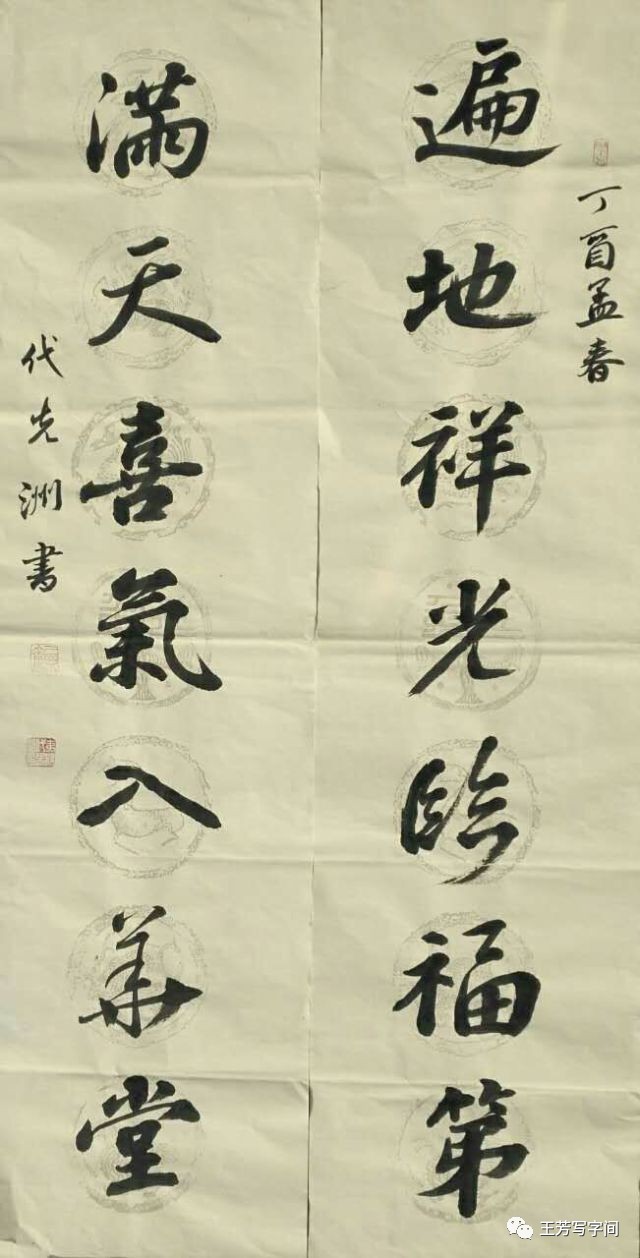 丁酉孟春
遍地祥光臨福第
满天喜氣入華堂
代先洲書
王芳写字间